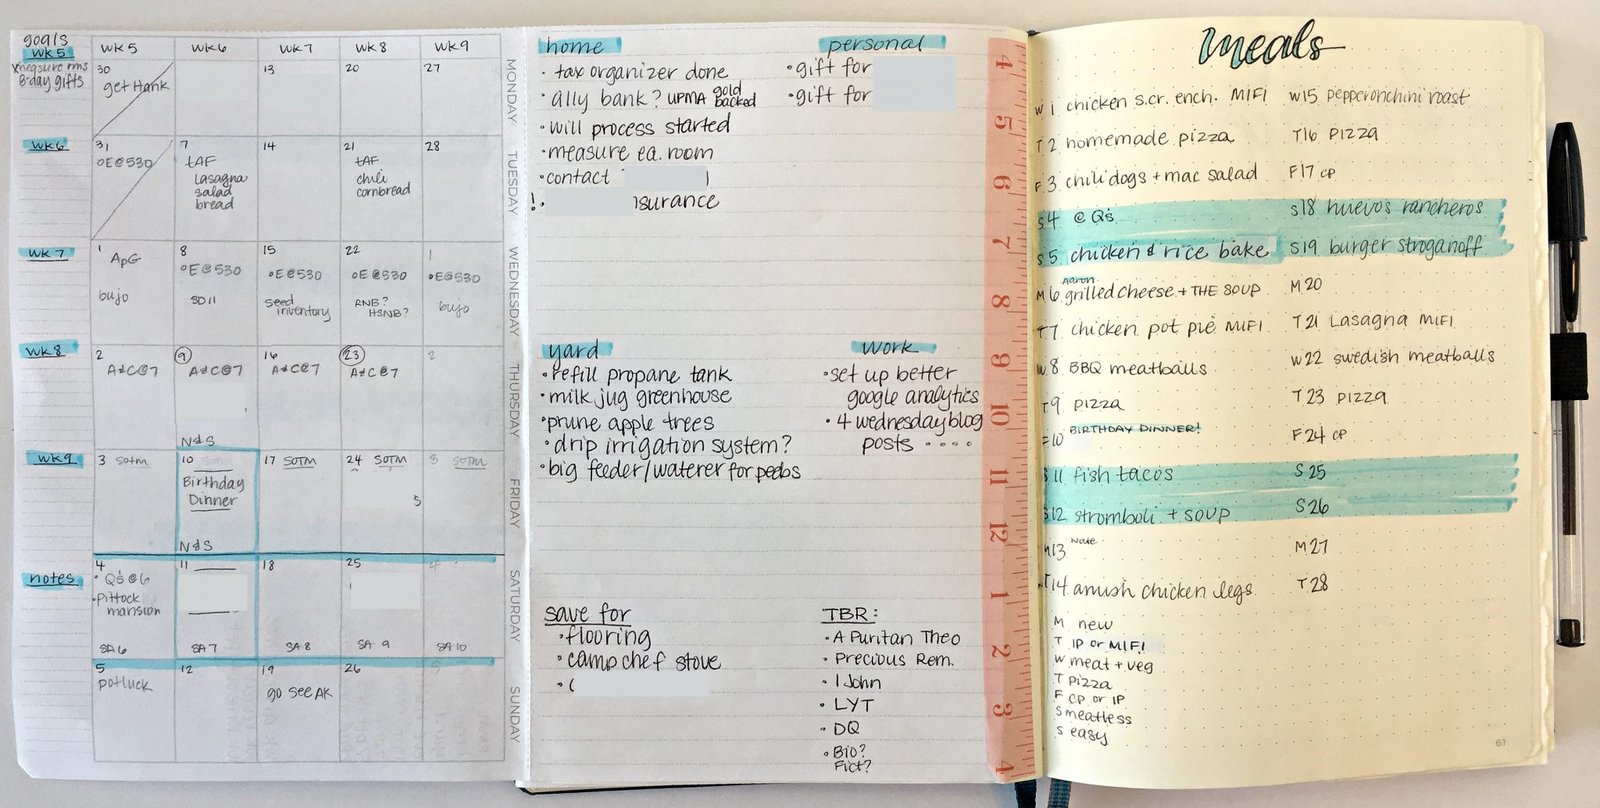 goals
wk 5
measure rms
B-day gifts
wk 6
wk 7
wk 8
wk 9
notes
wk 5 wk 6 wk 7 wk 8 wk 9
30 13 20 27
get Hank
31 7 14 21 28
OE@530 tAF tAF
Lasagna chili
salad cornbread
bread
1 8 15 22 1
ApG OE@530 OE@530 OE@530 OE@530
bujo SD11 seed RNB? bujo
inventory HSNB?
2 9 16 23 2
A&C@7 A&C@7 A&C@7 A&C@7
N&S
3 SOTM 10 17 SOTM 24 SOTM 3 SOTM
Birthday
Dinner
5
N&S
4 11 18 25 4
• Q's @ 6
• Pittock
mansion
SA 6 SA 7 SA 8 SA 9 SA 10
5 12 19 26 5
potluck go see AK
MONDAY
TUESDAY
WEDNESDAY
THURSDAY
FRIDAY
SATURDAY
SUNDAY
home
• tax organizer done
• ally bank? UPMA gold backed
• will process started
• measure ea. room
• contact
! • surance
personal
• gift for
• gift for
yard
• refill propane tank
• milk jug greenhouse
• prune apple trees
• drip irrigation system?
• big feeder/waterer for peebs
work
• set up better
google analytics
• 4 wednesday blog
posts
save for
• flooring
• camp chef stove
TBR:
• A Puritan Theo
• Precious Rem.
• 1 John
• LYT
• DQ
• Bio?
Fict?
4
5
6
7
8
9
10
11
12
1
2
3
4
meals
W 1 chicken s.cr. ench. MIFI
T 2 homemade pizza
F 3 chili dogs + mac salad
S 4 @ Q's
S 5 chicken & rice bake
Aaron
M 6 grilled cheese + THE SOUP
T 7 chicken pot pie MIFI
W 8 BBQ meatballs
T 9 pizza
F 10 BIRTHDAY DINNER!
S 11 fish tacos
S 12 stromboli + soup
Nate
M13
T14 amush chicken legs
W15 pepperonchini roast
T16 pizza
F17 CP
S18 huevos rancheros
S19 burger stroganoff
M20
T21 Lasagna MIFI
W22 swedish meatballs
T23 pizza
F24 CP
S 25
S 26
M27
T28
M new
T IP or MIFI
W meat + veg
T pizza
F CP or IP
S meatless
S easy
61